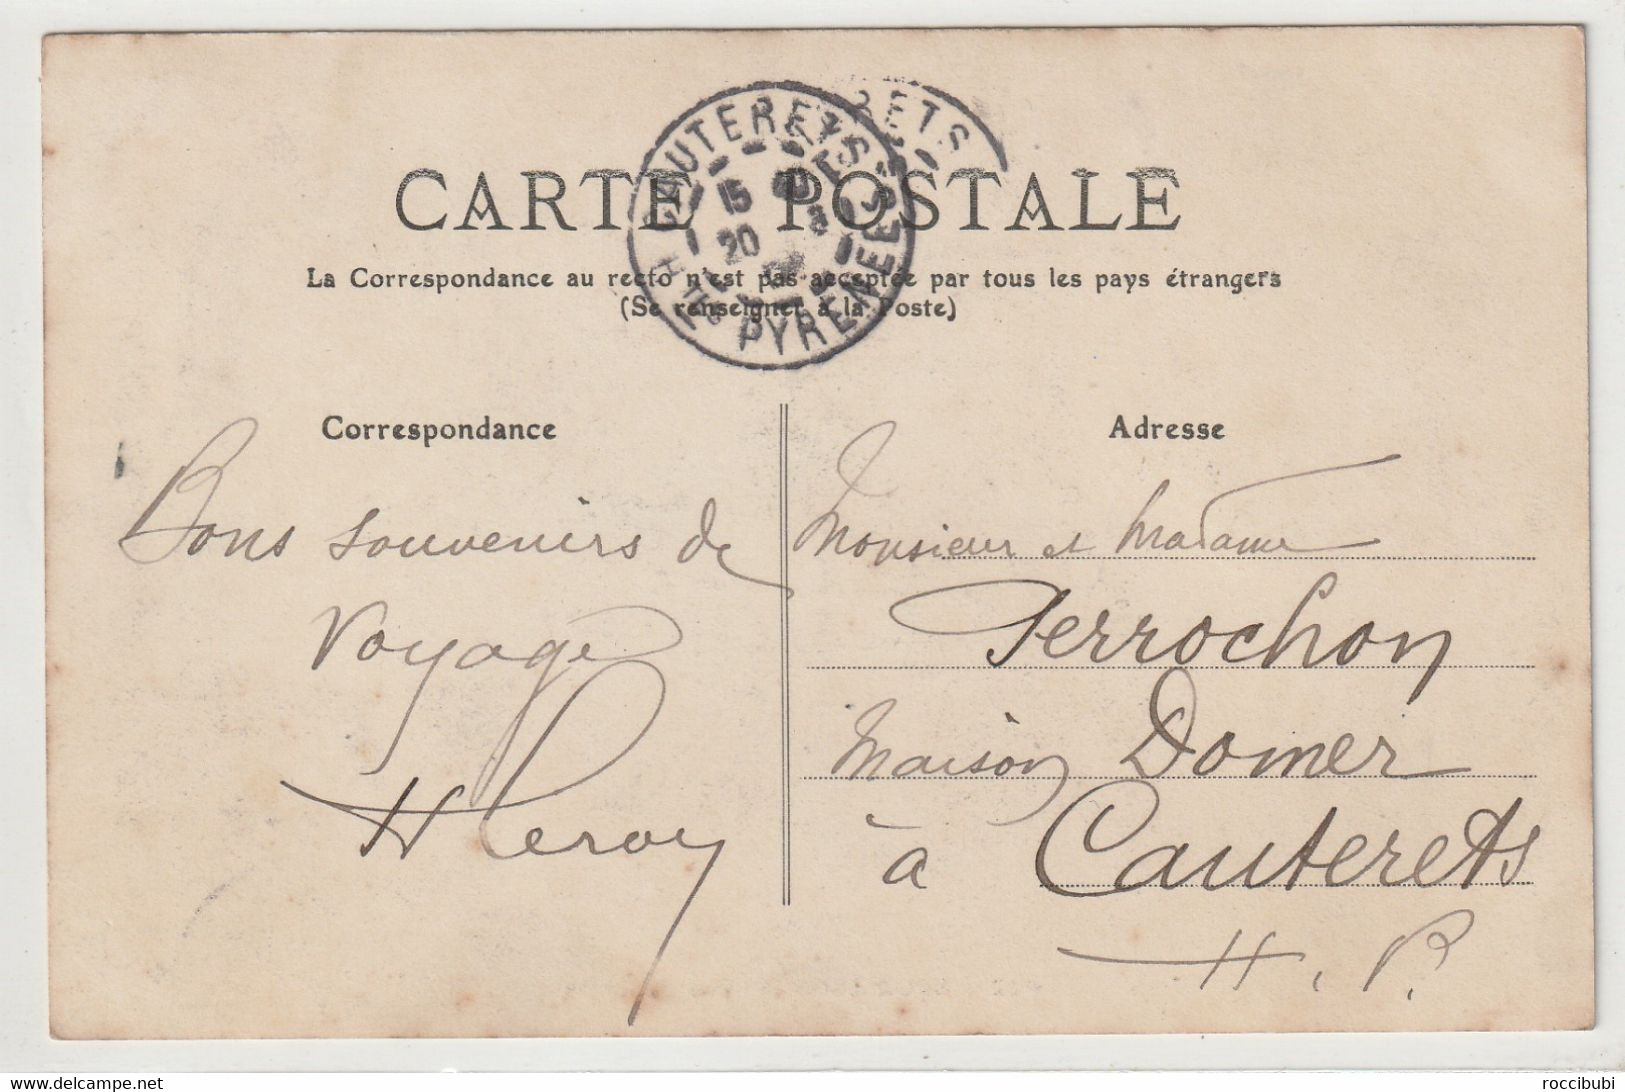 CARTE POSTALE
La Correspondance au recto n'est pas acceptée par tous les pays étrangers
(Se renseigner à la Poste)
CAUTERETS
15
20
Hтes PYRENEES
Correspondance
Bons souvenirs de
voyage
H Leroy
Adresse
Monsieur et Madame
Perrochon
Maison Domer
à Cauterets
H. P.
www.delcampe.net
roccibubi